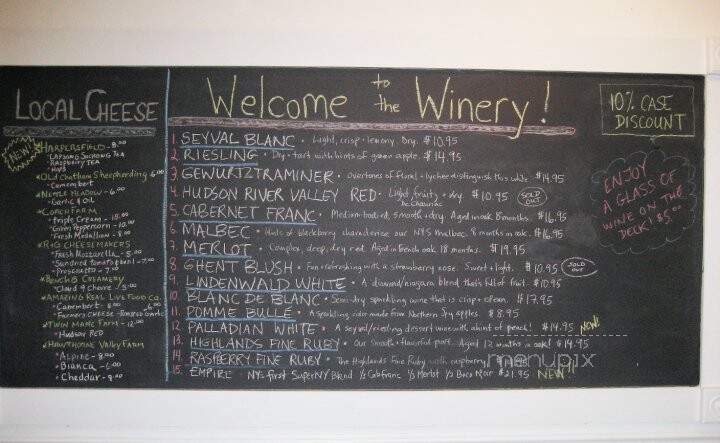 LOCAL CHEESE
NEW!
HARPERSFIELD - 8.00
LAPSANG SUCHONG TEA
RASPBERRY TEA
HOPS
OLD Chatham Shepherding 6.00
Camembert
NETTLE MEADOW - 6.00
Garlic & Oil
COACH FARM
Triple Cream - 15.00
Green Peppercorn - 10.00
Fresh Medallion - 8.00
R&G CHEESEMAKERS
Fresh Mozzarella - 5.00
Sundried tomato & basil - 7.00
Prosciutto - 7.00
Cloud 9 Chevre - 5.00
AMAZING REAL LIVE FOOD CO.
Camembert - 8.00
FARMERS CHEESE - Roasted Garlic
TWIN MAPLE FARM - 12.00
HUDSON RED
HAWTHORNE VALLEY FARM
Alpine - 8.00
Bianca - 6.00
Cheddar - 8.00
Welcome to the Winery!
1. SEYVAL BLANC • Light, crisp + lemony. Dry. $10.95
2. RIESLING • Dry + tart with hints of green apple. $14.95
3. GEWURTZTRAMINER • Overtones of floral + lychee distinguish this white $14.95
4. HUDSON RIVER VALLEY RED • Light, fruity + dry $10.95 SOLD OUT
DeChaunac
5. CABERNET FRANC • Medium-bodied, smooth + dry. Aged in oak 8 months. $16.95
6. MALBEC • Hints of blackberry characterize our NYS malbec. 8 months in oak. $16.95
7. MERLOT • Complex, deep, dry red. Aged in French oak 18 months. $19.95
8. GHENT BLUSH • Fun + refreshing with a strawberry nose. Sweet + light. $10.95 SOLD OUT
9. LINDENWALD WHITE • A diamond/niagara blend that's full of fruit. $10.95
10. BLANC DE BLANC • Semi-dry sparkling wine that is crisp + clean. $17.95
11. POMME BULLÉ • A sparkling cider made from Northern Spy apples. $8.95
12. PALLADIAN WHITE • A seyval/riesling dessert wine with a hint of peach! $14.95 NEW!
13. HIGHLANDS FINE RUBY • Our smooth + flavorful port. Aged 12 months in oak! $14.95
14. RASPBERRY FINE RUBY • The Highlands Fine Ruby with raspberry
15. EMPIRE NY's first SuperNY Blend 1/3 Cab Franc 1/3 Merlot 1/3 Baco Noir $21.95 NEW!!
10% CASE
DISCOUNT
ENJOY
A GLASS OF
WINE ON THE
DECK! $5.00
menupix